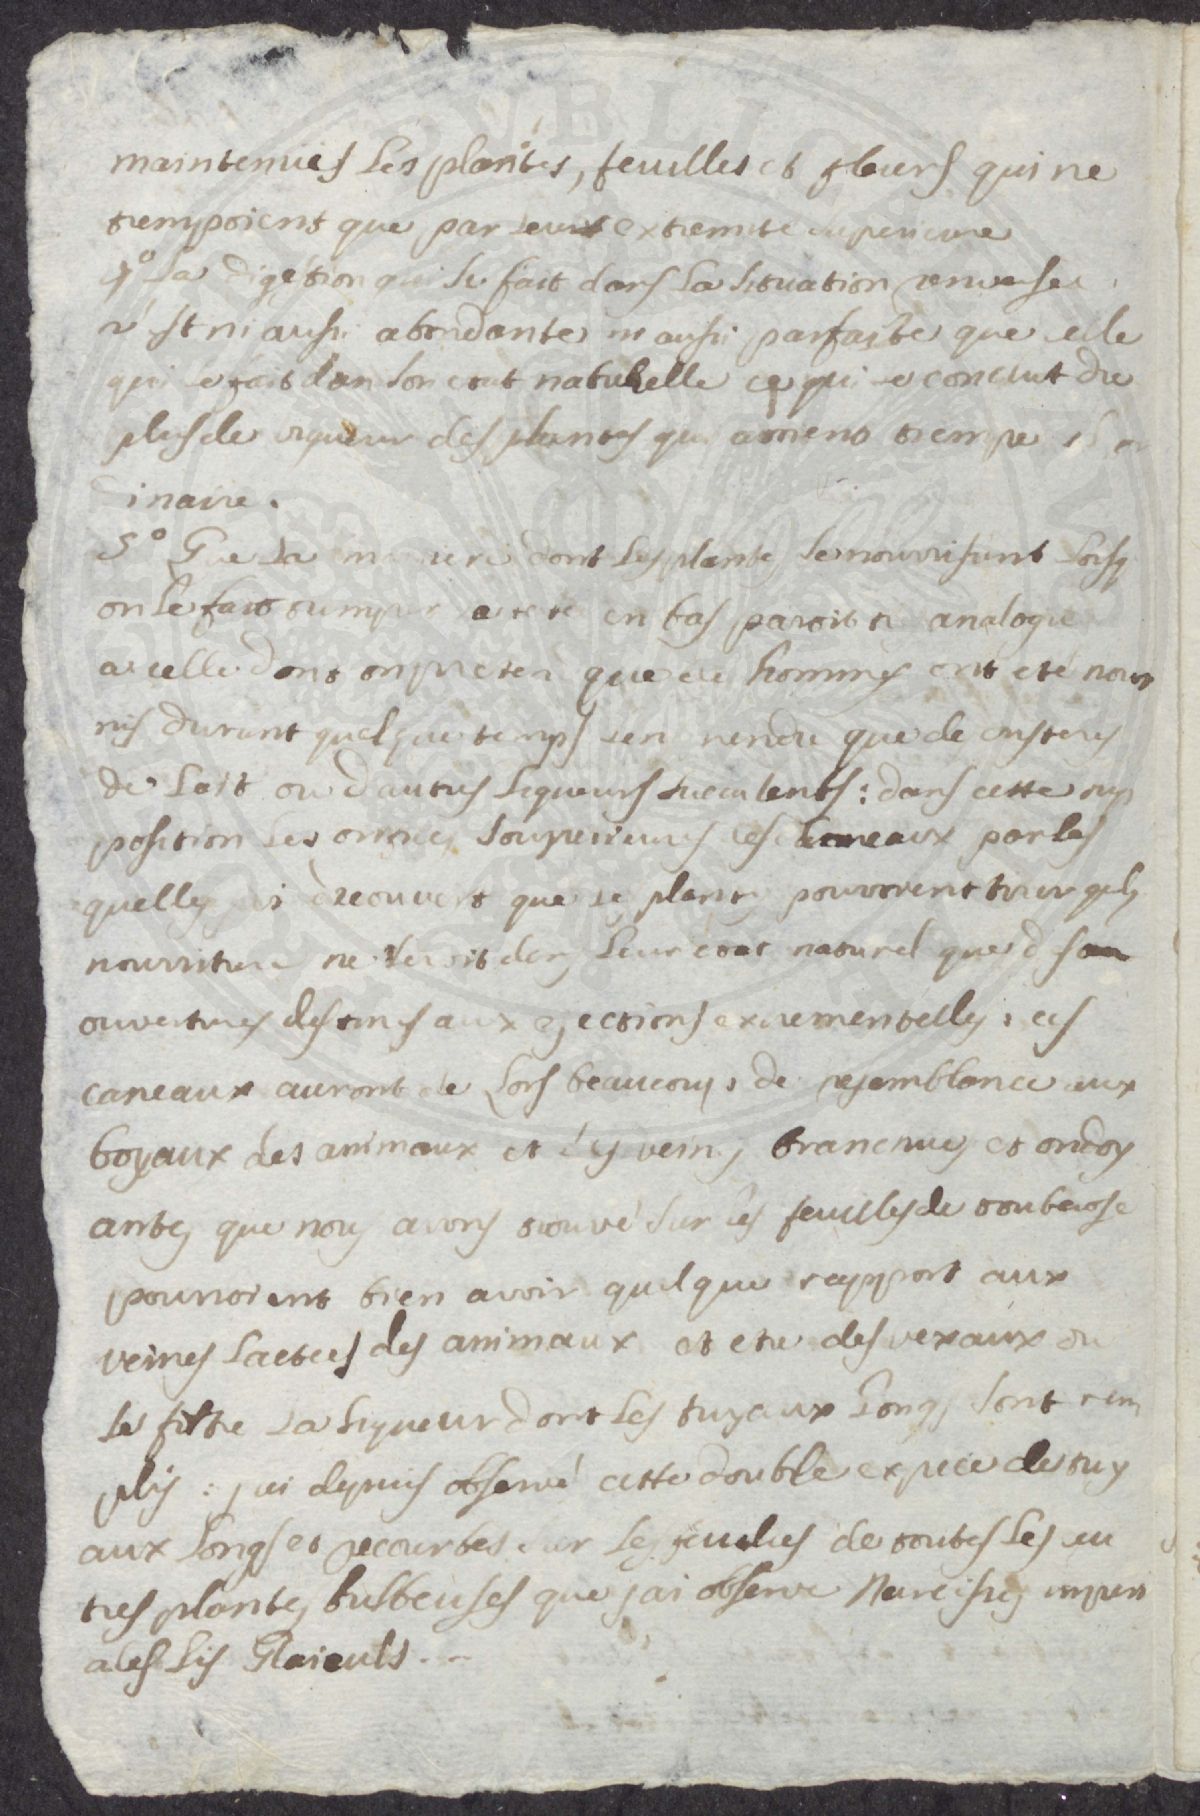 maintenues les plantes, feuilles et fleurs qui ne
trempoient que par leurs extremite superieure
4° la digestion qui se fait dans la situation renversee
n'est ni aussi abondante ni aussi parfaite que celle
qui se fait dan son etat naturelle ce qui se conclut du
plus de vigueur des plantes qui avoient trempe a l'or
dinaire.
5° Que la maniere dont les plantes se nourrissent lorsq
on le fait tremper la tete en bas paroit tr analogue
a celle dont on pretend que des hommes ont eté nour
ris durant quelque temps en ne prendre que de clisteres
de lait ou d'autres liqueurs succulents: dans cette sup
position les orifices souperieurs les caneaux par les
quelles j'ai decouvert que les plantes pouvoient tirer qlq
nourriture ne seroit dans leur etat naturel que d
ouvertures destinés aux ejections excrementelles: ces
caneaux auront de lors beaucoup de resemblance aux
boyaux des animaux et les veines branchues et ondoy
antes que nous avons trouvé sur les feuilles de toubeuse
pourroient bien avoir quelque rapport aux
veines lactees des animaux et etre des vexaux ou
se filtre la liqueur dont les tuyaux longs sont rem
plis: j'ai depuis observé cette double expece de tuy
aux longs et recourbes sur les feuilles de toutes les au
tres plantes bulbeuses que j'ai observe Narcisses imperi
ales Lis Glaieuls.
PUBLICA